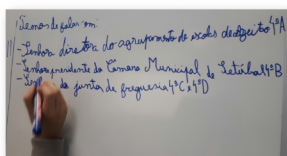 Temos de falar com:
- Senhora diretora do agrupamento de escolas de Azeitão 4ºA
- Senhor presidente da Câmara Municipal de Setúbal 4ºB
- da junta de freguesia 4ºC e 4ºD